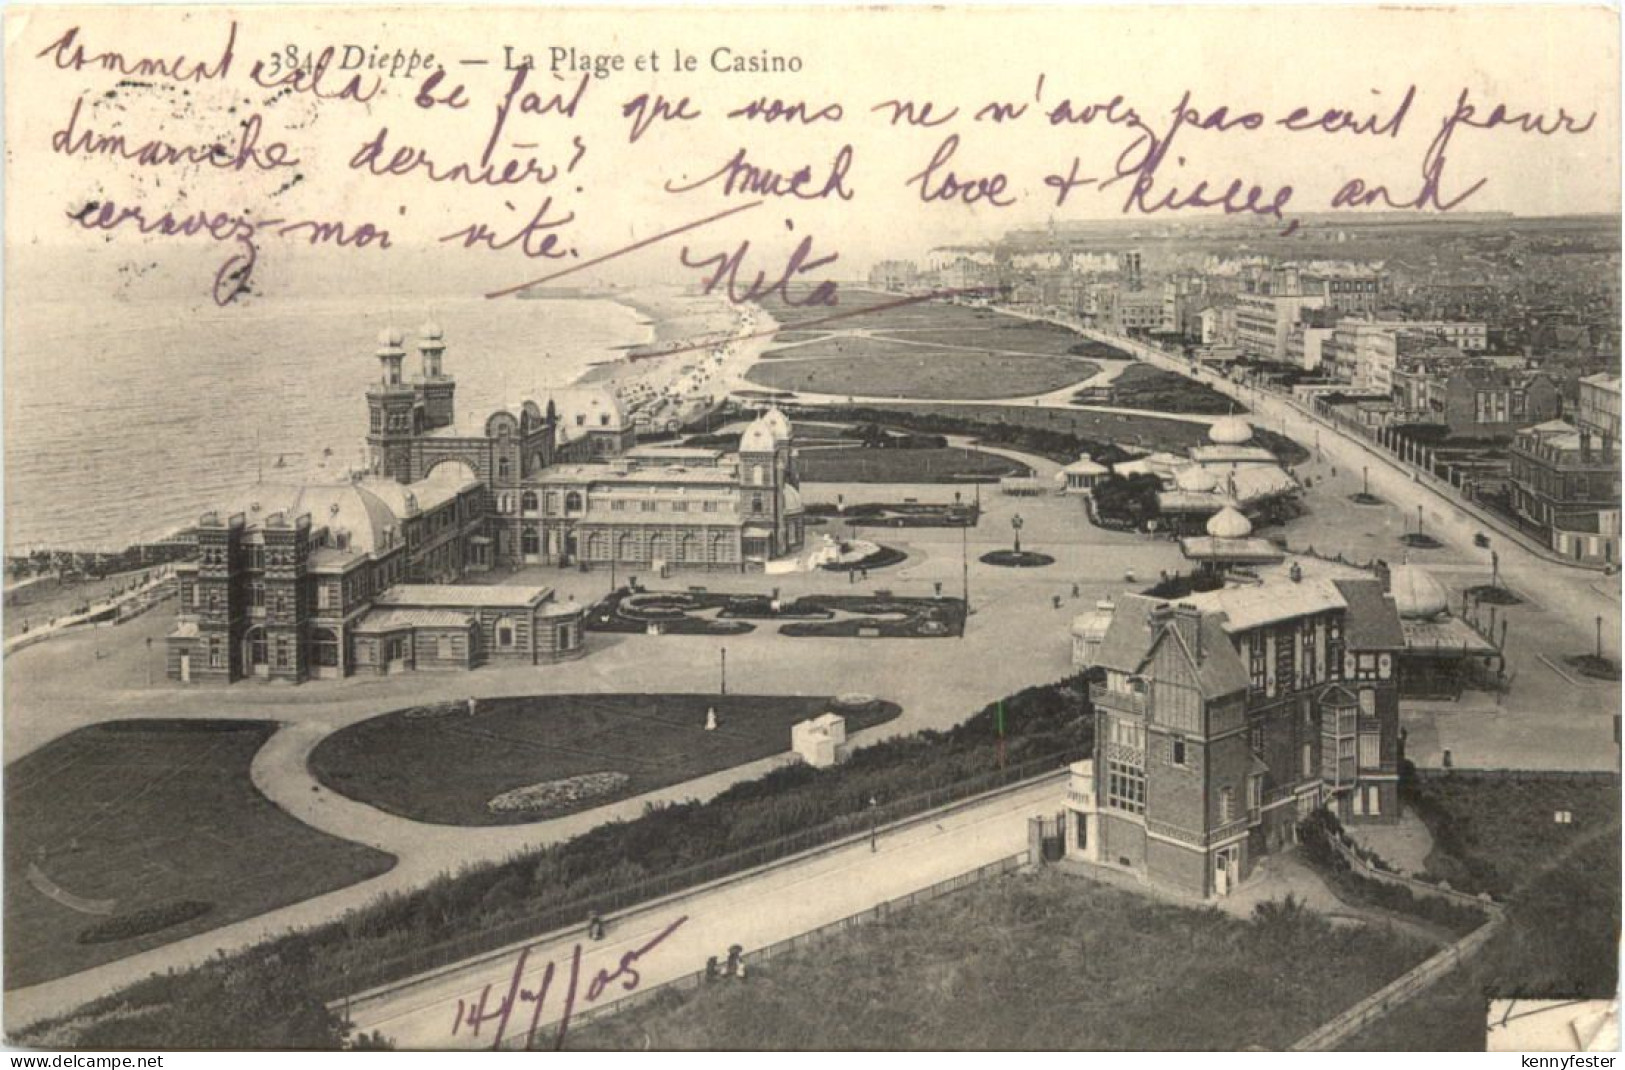 384. Dieppe. — La Plage et le Casino
Comment cela se fait que vous ne m'avez pas ecrit pour
dimanche dernièr? Much love + kisses, and
ecrivez-moi vite.
Nita
14/ /05
www.delcampe.net
kennyfester